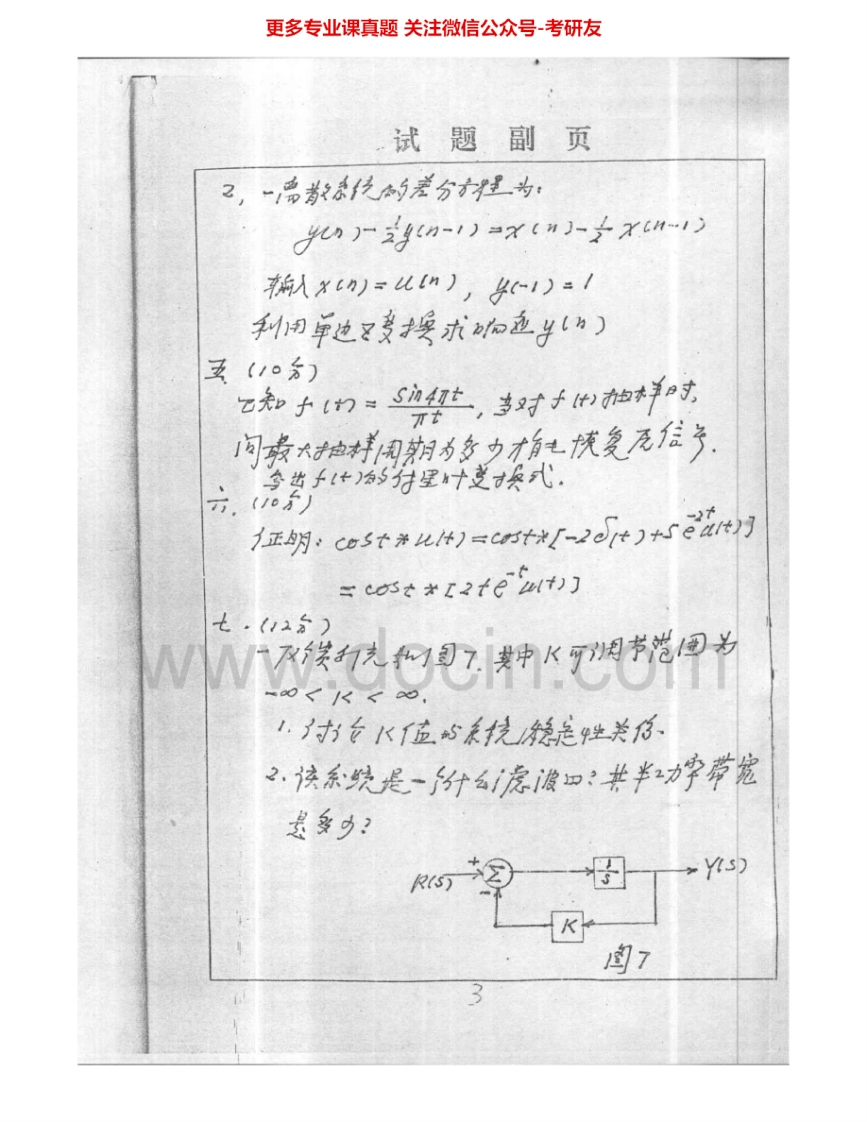 更多专业课真题 关注微信公众号-考研友
试 题 副 页
2, 一离散系统的差分方程为:
y(n)-½y(n-1)=x(n)-½x(n-1)
输入x(n)=u(n), y(-1)=1
利用单边Z变换求响应y(n)
五. (10分)
已知 f(t) = sin4πt/πt, 当对f(t)抽样时,
问最大抽样周期为多少才能恢复原信号.
写出f(t)的付里叶变换式.
六. (10分)
证明: cost*u(t)=cost*[-2δ(t)+5e^{-2t}u(t)]
=cost*[2te^{-t}u(t)]
七. (12分)
一反馈系统如图7. 其中K可调节范围为
-∞<K<∞.
1. 讨论K值与系统稳定性关系.
2. 该系统是一个什么滤波口? 其半功率带宽
是多少?
R(s) + Σ - 1/s Y(s)
K
图7
3
www.docin.com